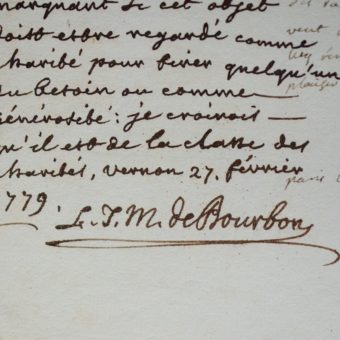 marquant si cet objet
doitt ettre regardé comme
charité pour tirer quelqu'un
du besoin ou comme —
générosité : je croirois —
qu'il ett de la classe des
charités, vernon 27. février
1779.
L. J. M. de Bourbon
veut
plaisir